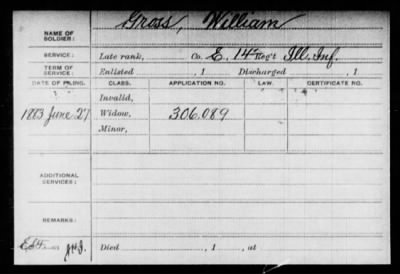 Gross, William
NAME OF SOLDIER:
SERVICE: Late rank, Co. E, 14 Reg't Ill. Inf.
TERM OF SERVICE: Enlisted , 1 Discharged , 1
DATE OF FILING. CLASS. APPLICATION NO. LAW. CERTIFICATE NO.
Invalid,
1883 June 27 Widow, 306.089
Minor,
ADDITIONAL SERVICES:
REMARKS:
Died , 1 , at